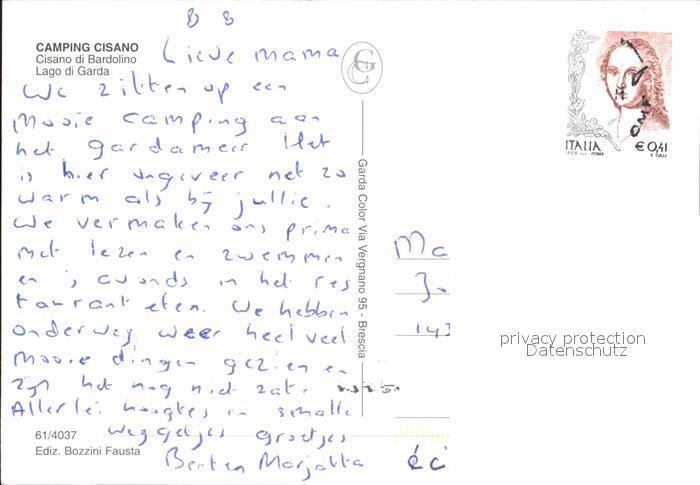 B B
CAMPING CISANO
Cisano di Bardolino
Lago di Garda
Lieve mama
We zitten op een
mooie camping aan
het gardameer Het
is hier ongeveer net zo
warm als bij jullie.
We vermaken ons prima
met lezen en zwemmen
en 's avonds in het res
taurant eten. We hebben
onderweg weer heel veel
mooie dingen gezien en
zijn het nog niet zat.
Allerlei hoogtes en smalle
weggetjes groetjes
Bert en Marjotta
61/4037
Ediz. Bozzini Fausta
Garda Color Via Vergnano 95 - Brescia
ITALIA
€ 0,41
ROMA
F. TULLI
Ma
Jo
143
privacy protection
Datenschutz